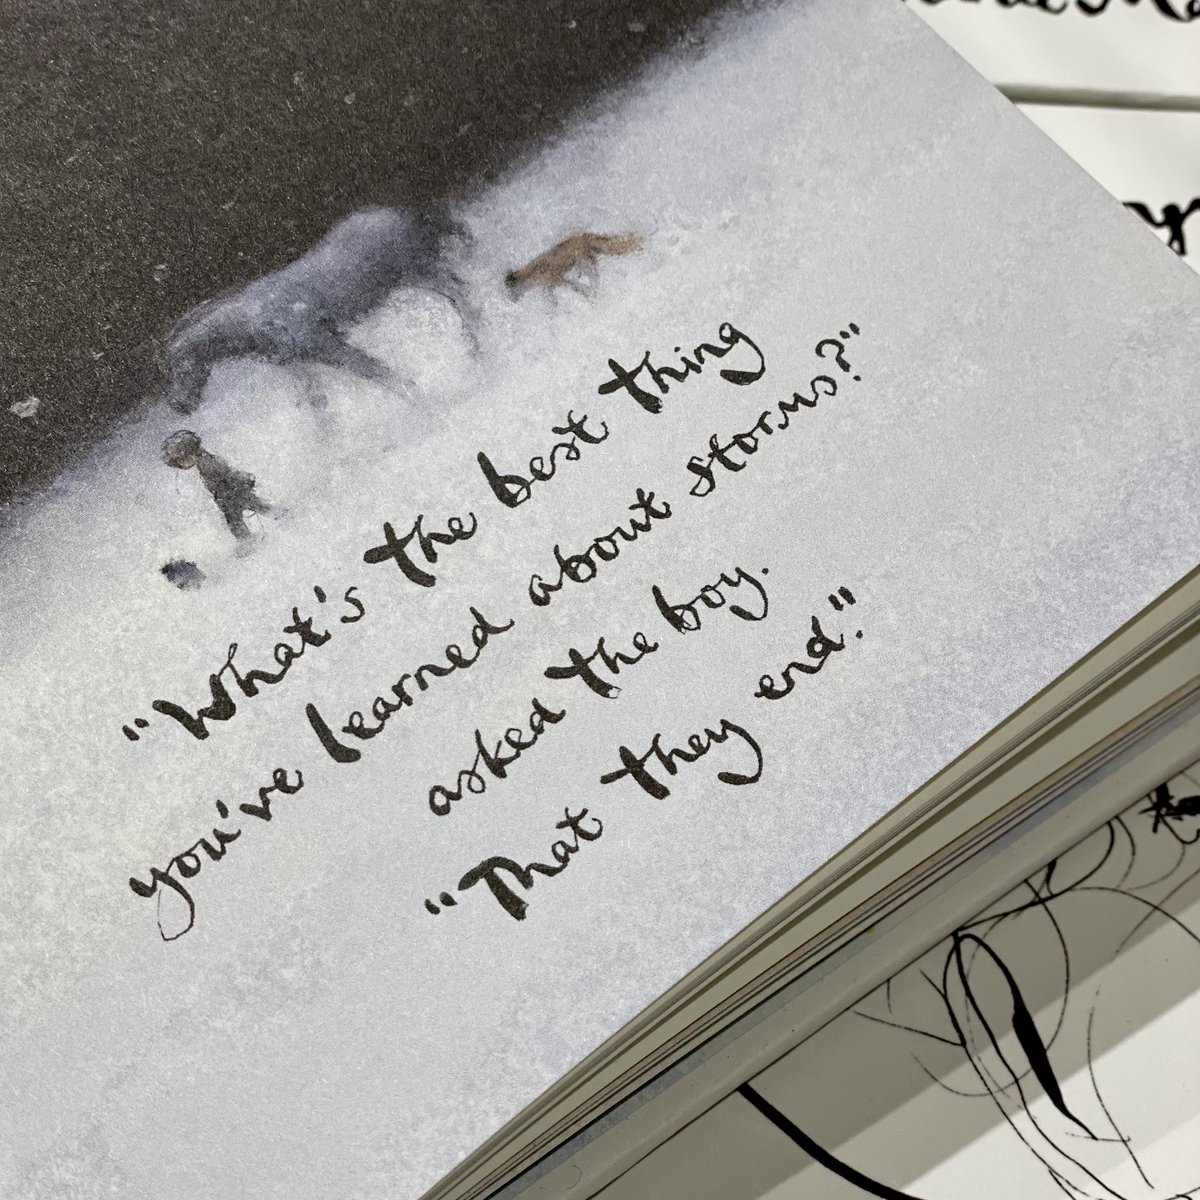 "What's the best thing
you've learned about storms?"
asked the boy.
"That they end."